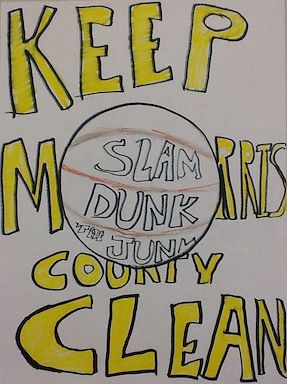 KEEP
MORRIS
SLAM
DUNK
THE
JUNK
COUNTY
CLEAN